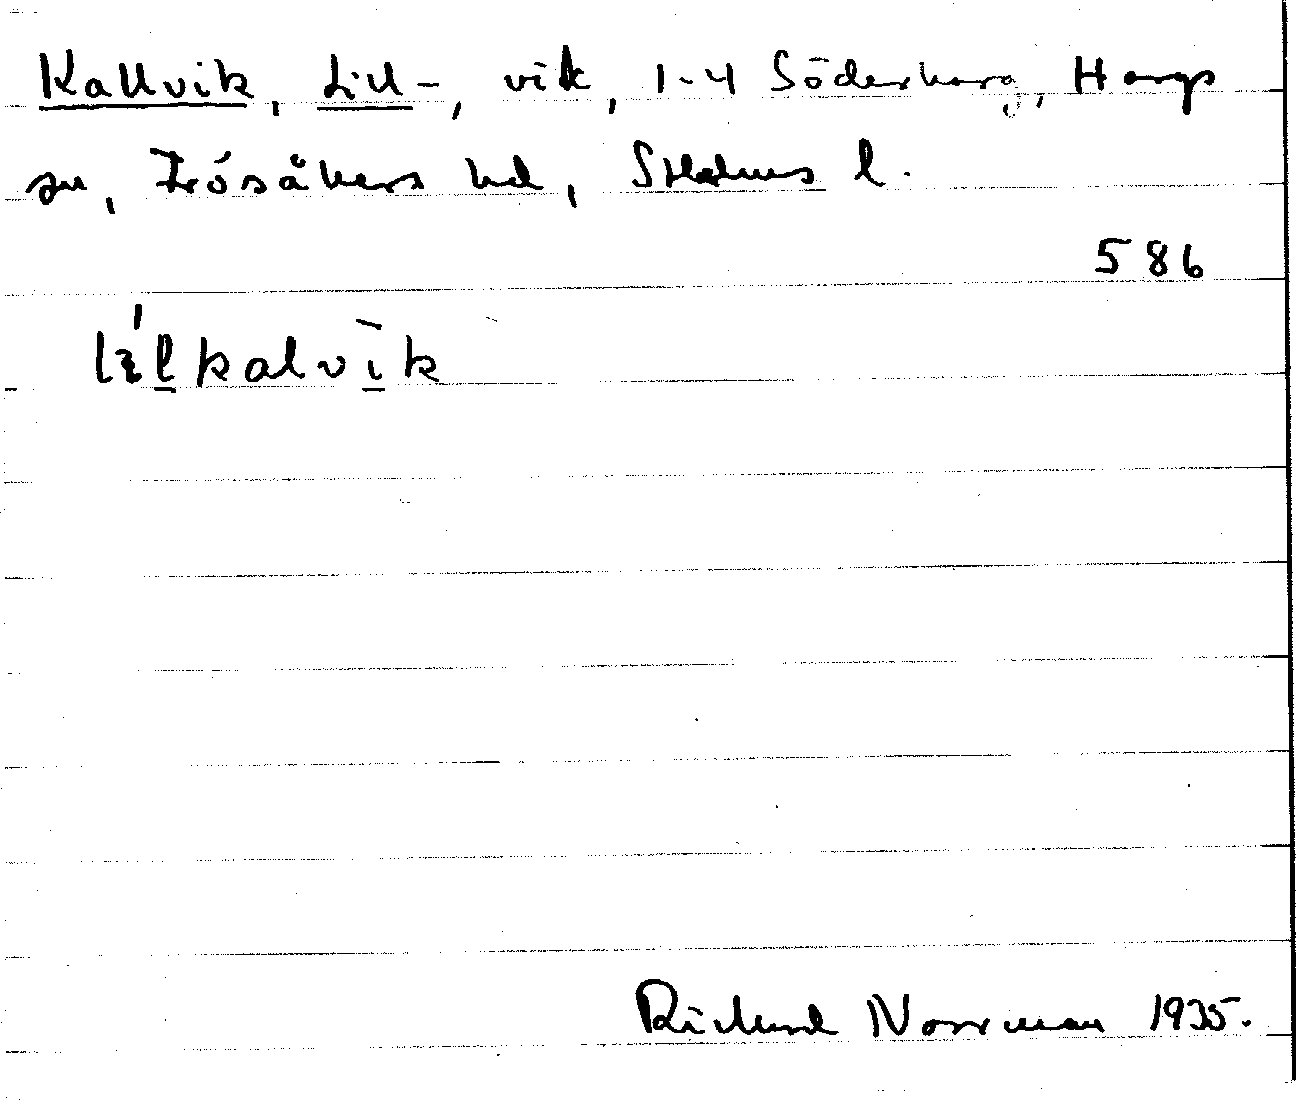 Kallvik, Lill-, vik, 1-4 Söderharg, Hargs
sn, Frösåkers hd, Sthlms l.
586
lílkalvīk
Richard Norrman 1935.